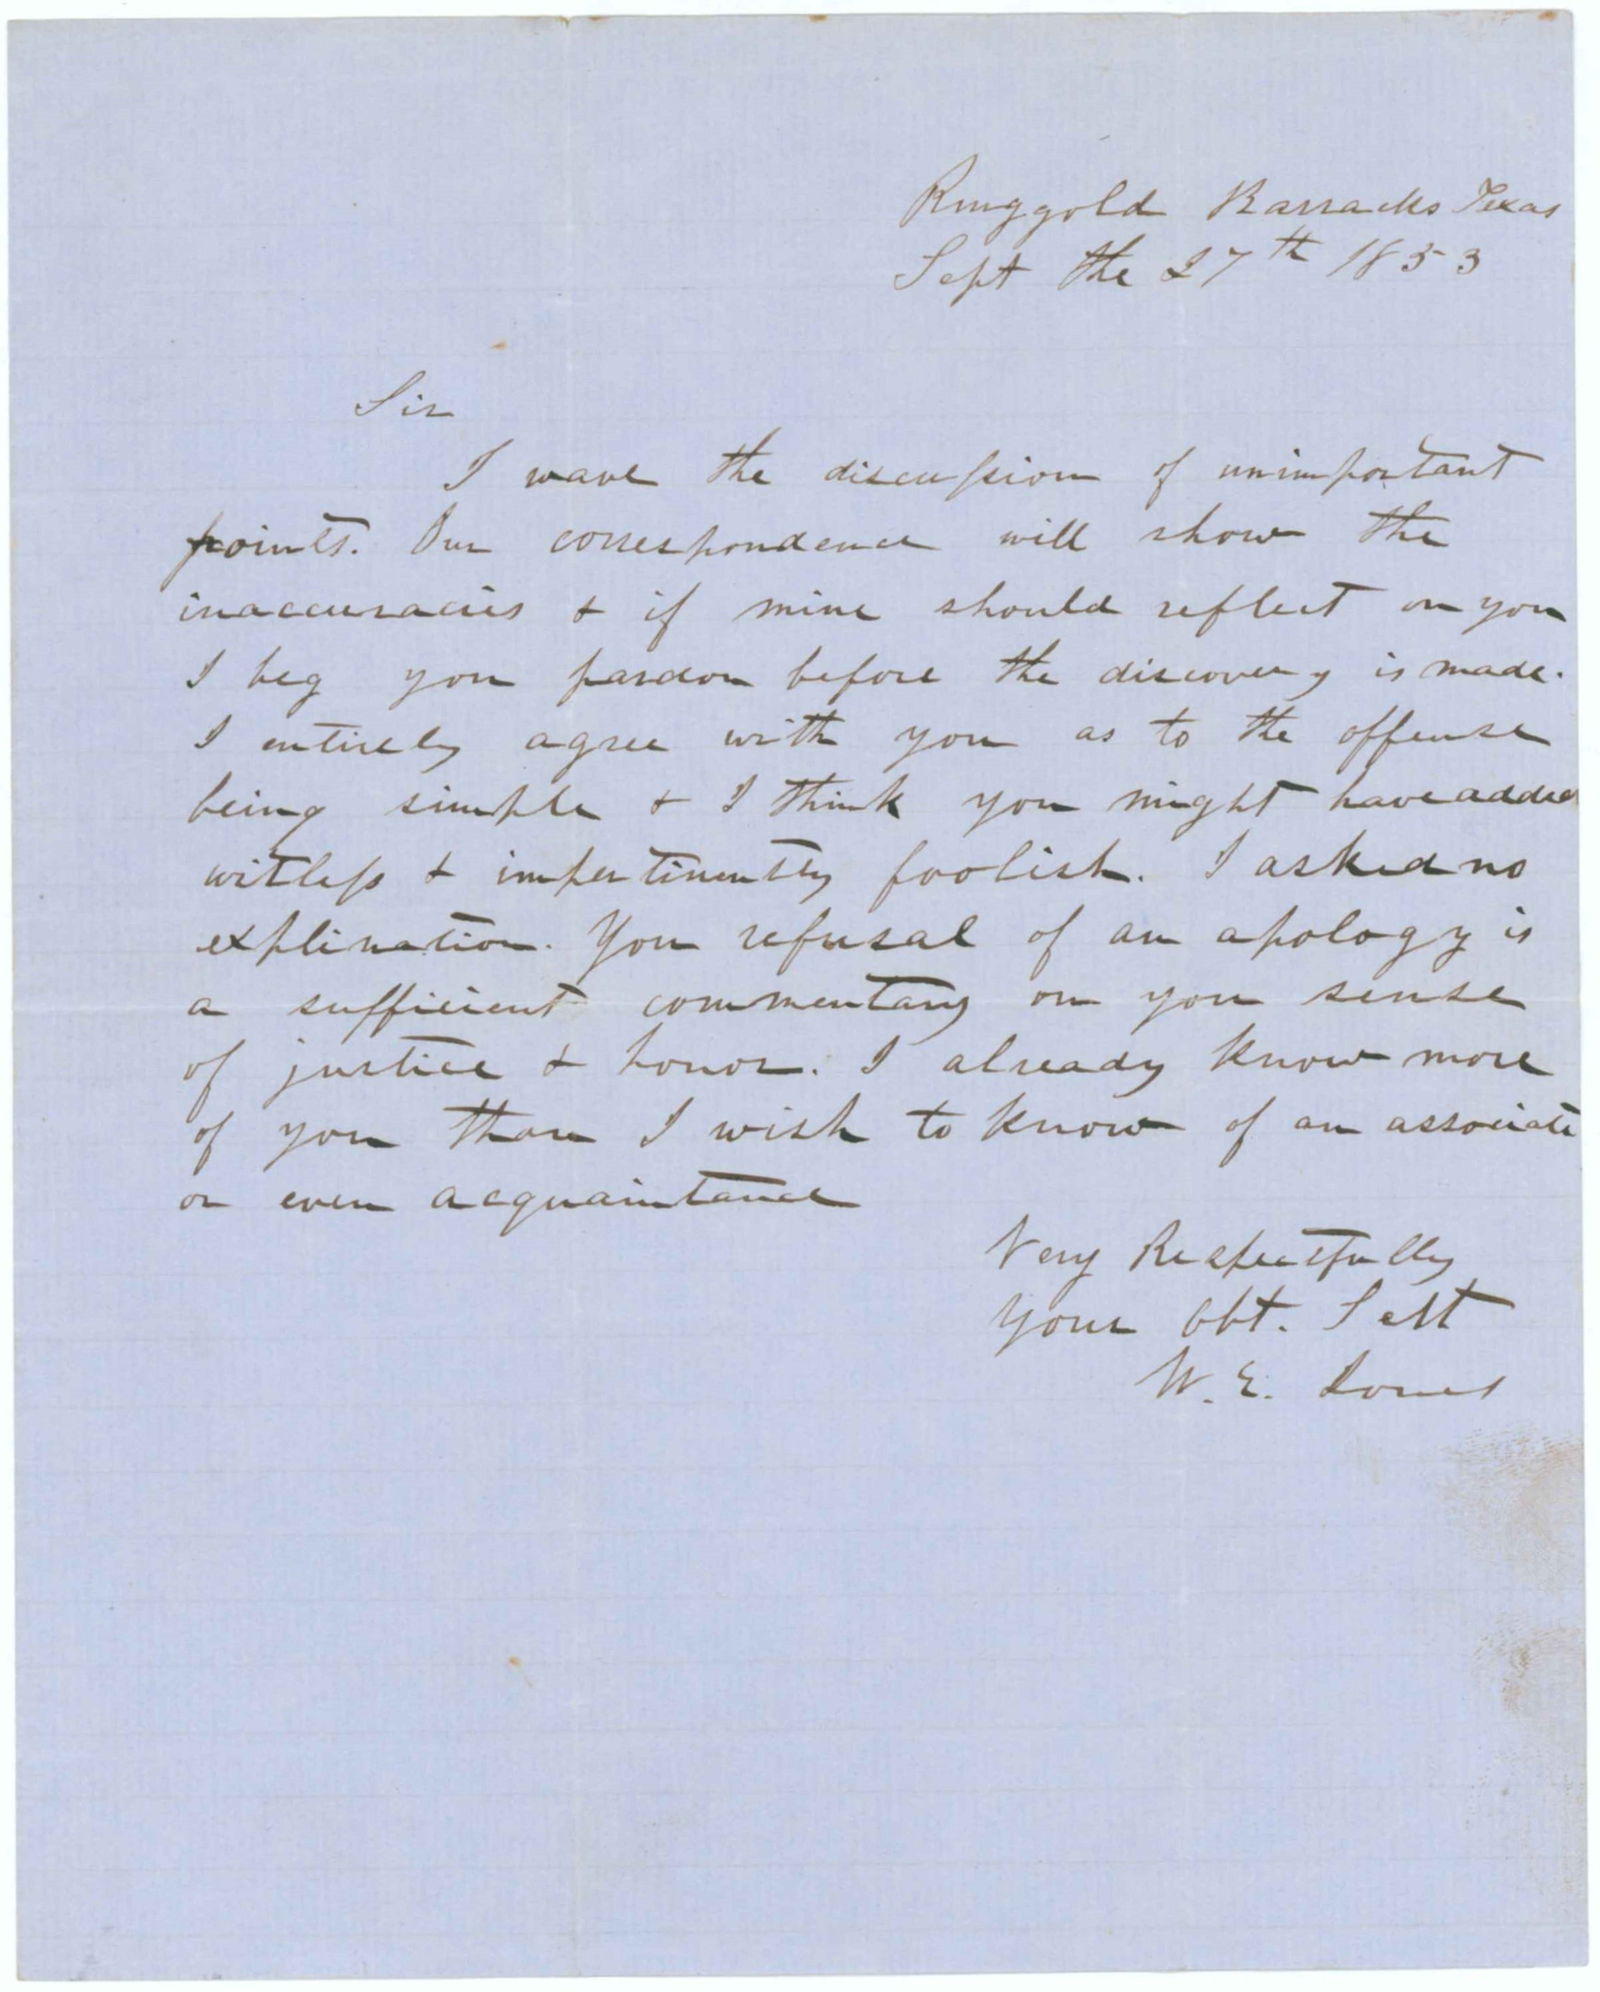 Ringgold Barracks Texas
Sept the 27th 1853
Sir
I wave the discussion of unimportant
points. Our correspondence will show the
inaccuracies & if mine should reflect on you
I beg you pardon before the discovery is made.
I entirely agree with you as to the offense
being simple & I think you might have added
witless & impertinently foolish. I asked no
explination. You refusal of an apology is
a sufficient commentary on you sense
of justice & honor. I already know more
of you than I wish to know of an associate
or even acquaintance
Very Respectfully
Your Obt. Servt
W. E. Jones